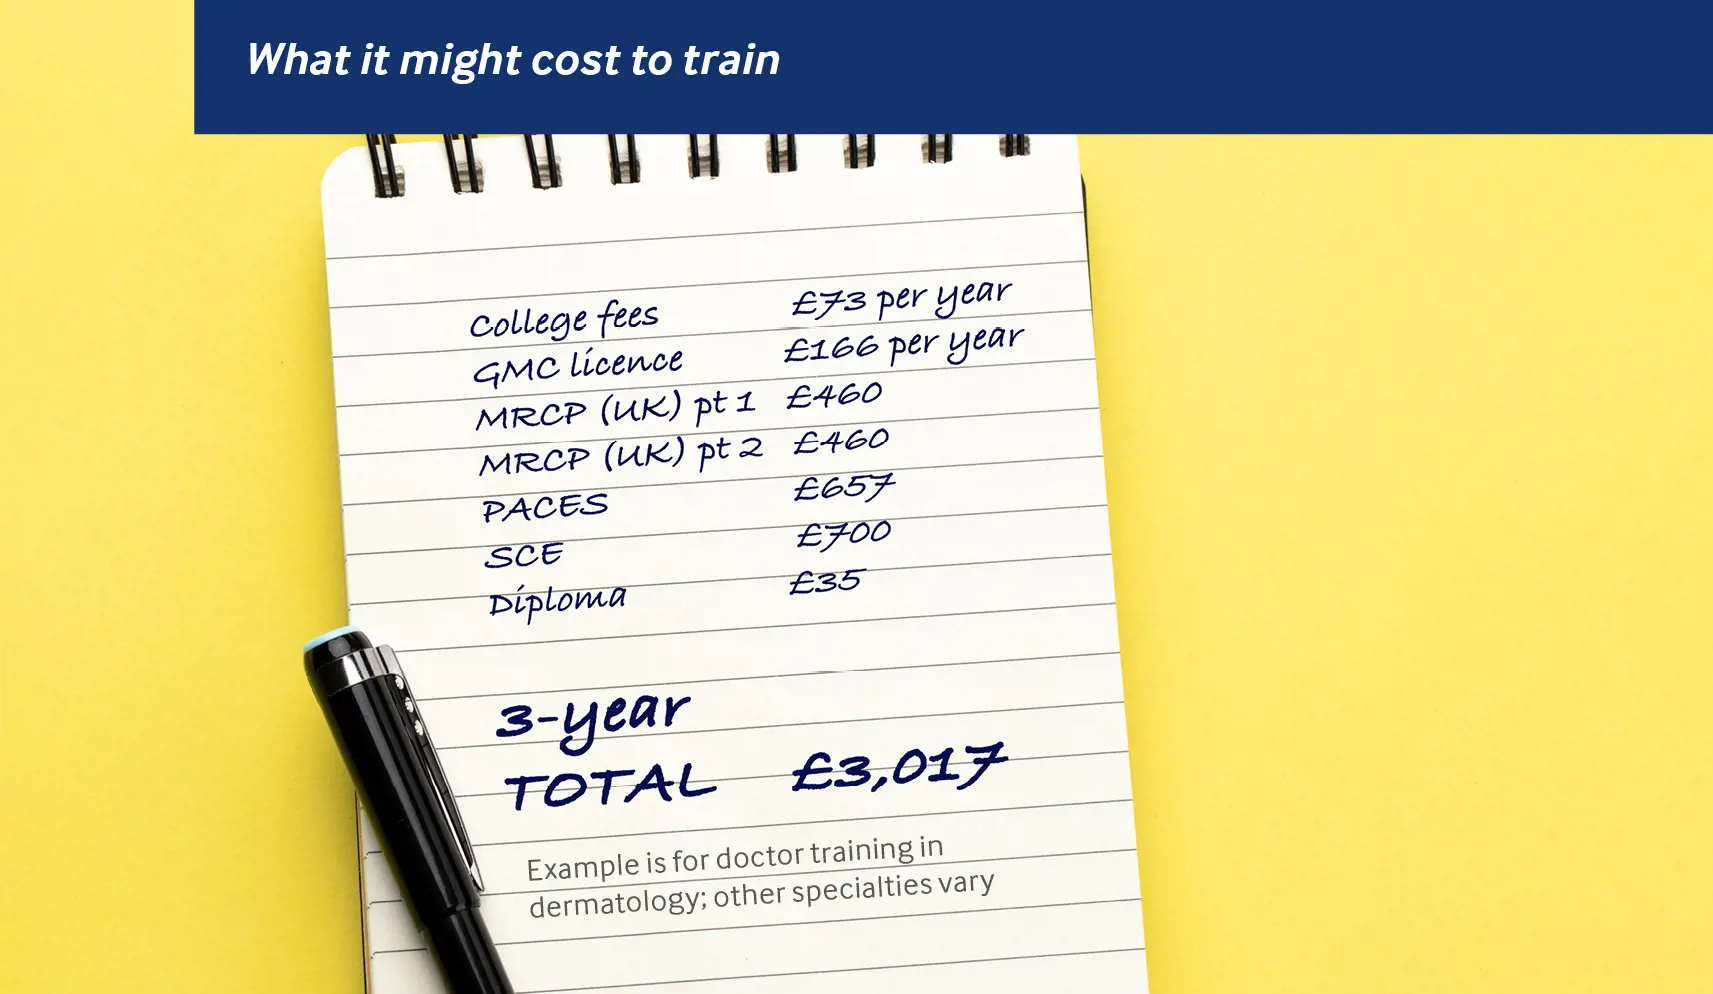 What it might cost to train
College fees £73 per year
GMC licence £166 per year
MRCP (UK) pt 1 £460
MRCP (UK) pt 2 £460
PACES £657
SCE £700
Diploma £35
3-year
TOTAL £3,017
Example is for doctor training in
dermatology; other specialties vary